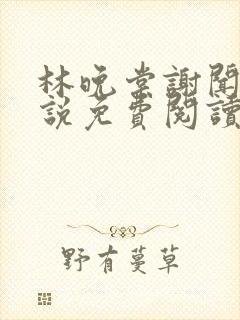 林晚棠謝聞
說免費閱讀
野有蔓草